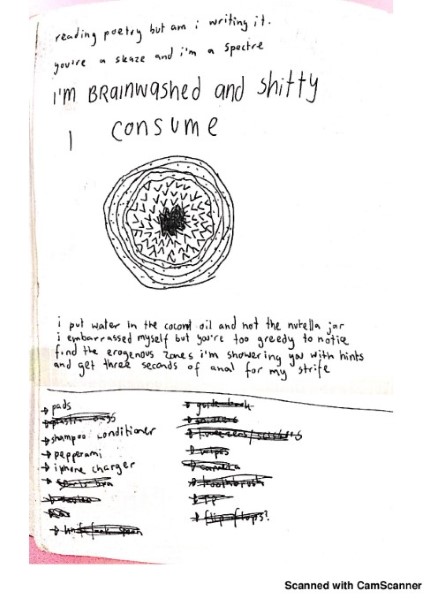 reading poetry but am i writing it.
you're a sleaze and i'm a spectre
i'm BRAINWASHED and shitty
I consume
i put water in the coconut oil and not the nutella jar
i embarrassed myself but you're too greedy to notice
find the erogenous zones i'm showering you with hints
and get three seconds of anal for my strife
→ pads
→ shampoo conditioner
→ pepperami
→ iphone charger
→ guide book
→ tweezers/scissors
→ wipes
→ camera
→ toothbrush
→ flip flops?
Scanned with CamScanner